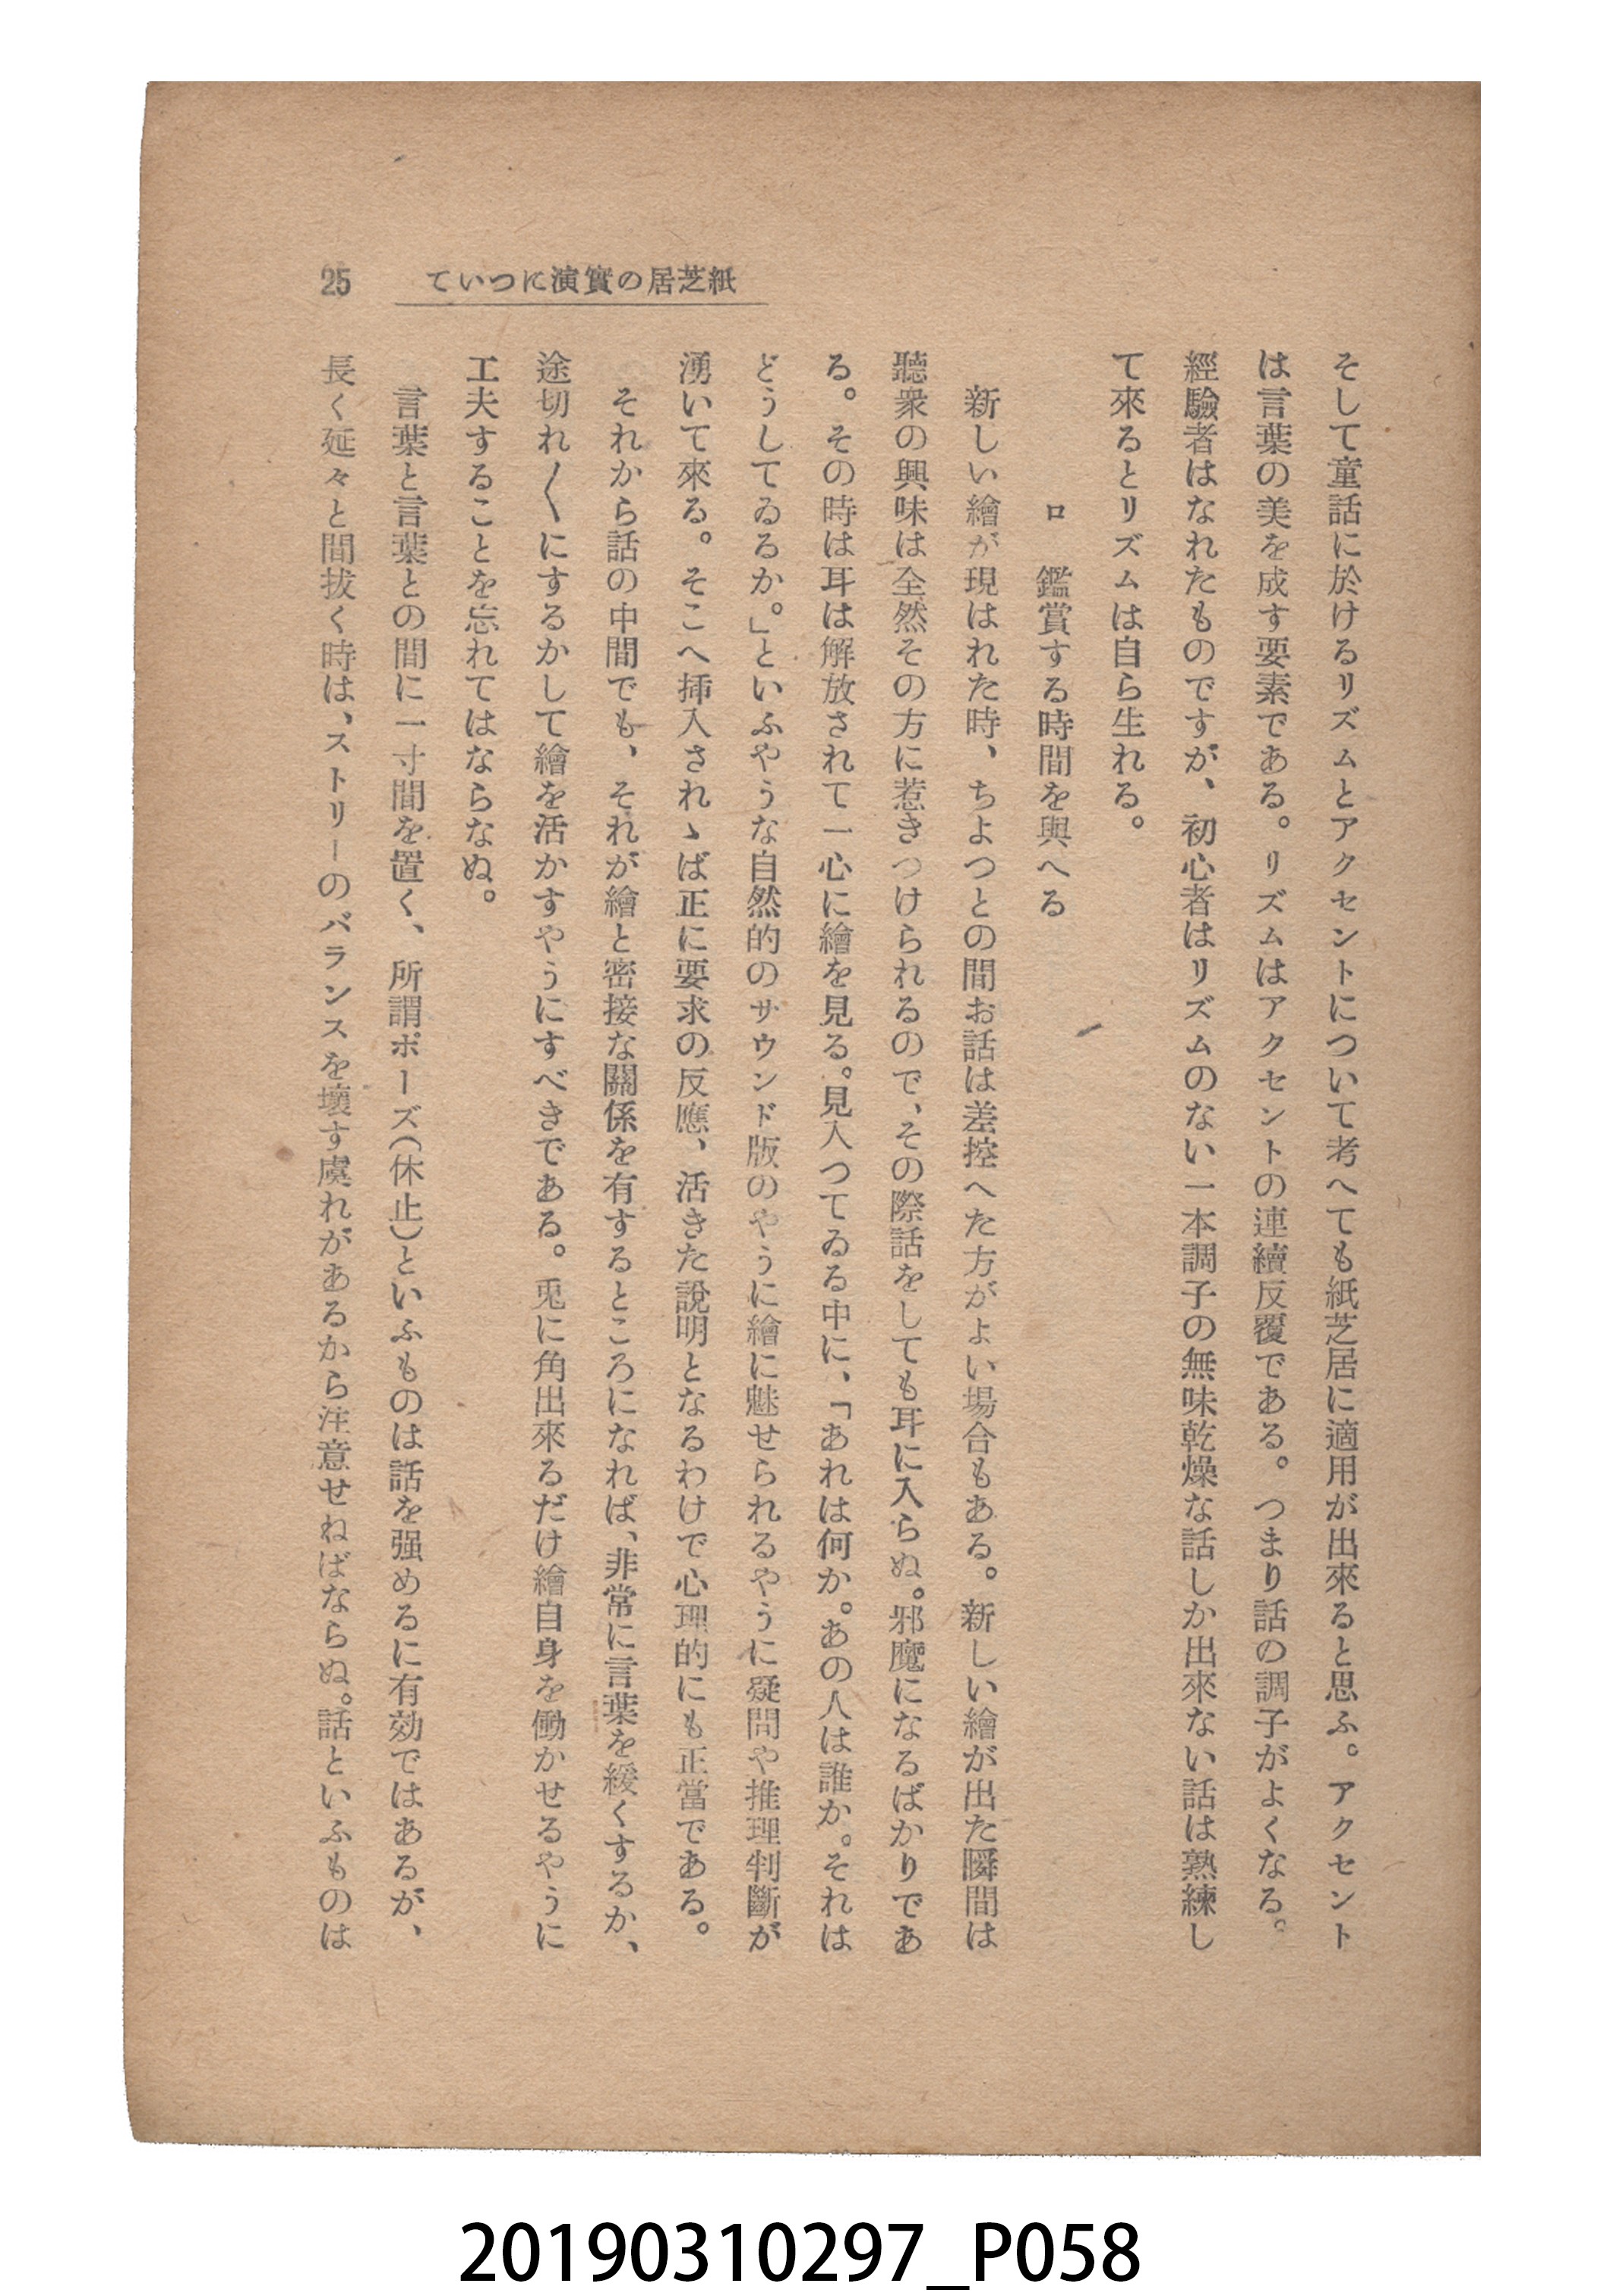 25
ていつに演實の居芝紙
そして童話に於けるリズムとアクセントについて考へても紙芝居に適用が出來ると思ふ。アクセント
は言葉の美を成す要素である。リズムはアクセントの連續反覆である。つまり話の調子がよくなる。
經驗者はなれたものですが、初心者はリズムのない一本調子の無味乾燥な話しか出來ない話は熟練し
て來るとリズムは自ら生れる。
ロ　鑑賞する時間を與へる
新しい繪が現はれた時、ちよつとの間お話は差控へた方がよい場合もある。新しい繪が出た瞬間は
聽衆の興味は全然その方に惹きつけられるので、その際話をしても耳に入らぬ。邪魔になるばかりであ
る。その時は耳は解放されて一心に繪を見る。見入つてゐる中に、「あれは何か。あの人は誰か。それは
どうしてゐるか。」といふやうな自然的のサウンド版のやうに繪に魅せられるやうに疑問や推理判斷が
湧いて來る。そこへ挿入されゝば正に要求の反應、活きた說明となるわけで心理的にも正當である。
それから話の中間でも、それが繪と密接な關係を有するところになれば、非常に言葉を緩くするか、
途切れ〳〵にするかして繪を活かすやうにすべきである。兎に角出來るだけ繪自身を働かせるやうに
工夫することを忘れてはならなぬ。
言葉と言葉との間に一寸間を置く、所謂ポーズ（休止）といふものは話を强めるに有効ではあるが、
長く延々と間拔く時は、ストリーのバランスを壞す虞れがあるから注意せねばならぬ。話といふものは
20190310297_P058